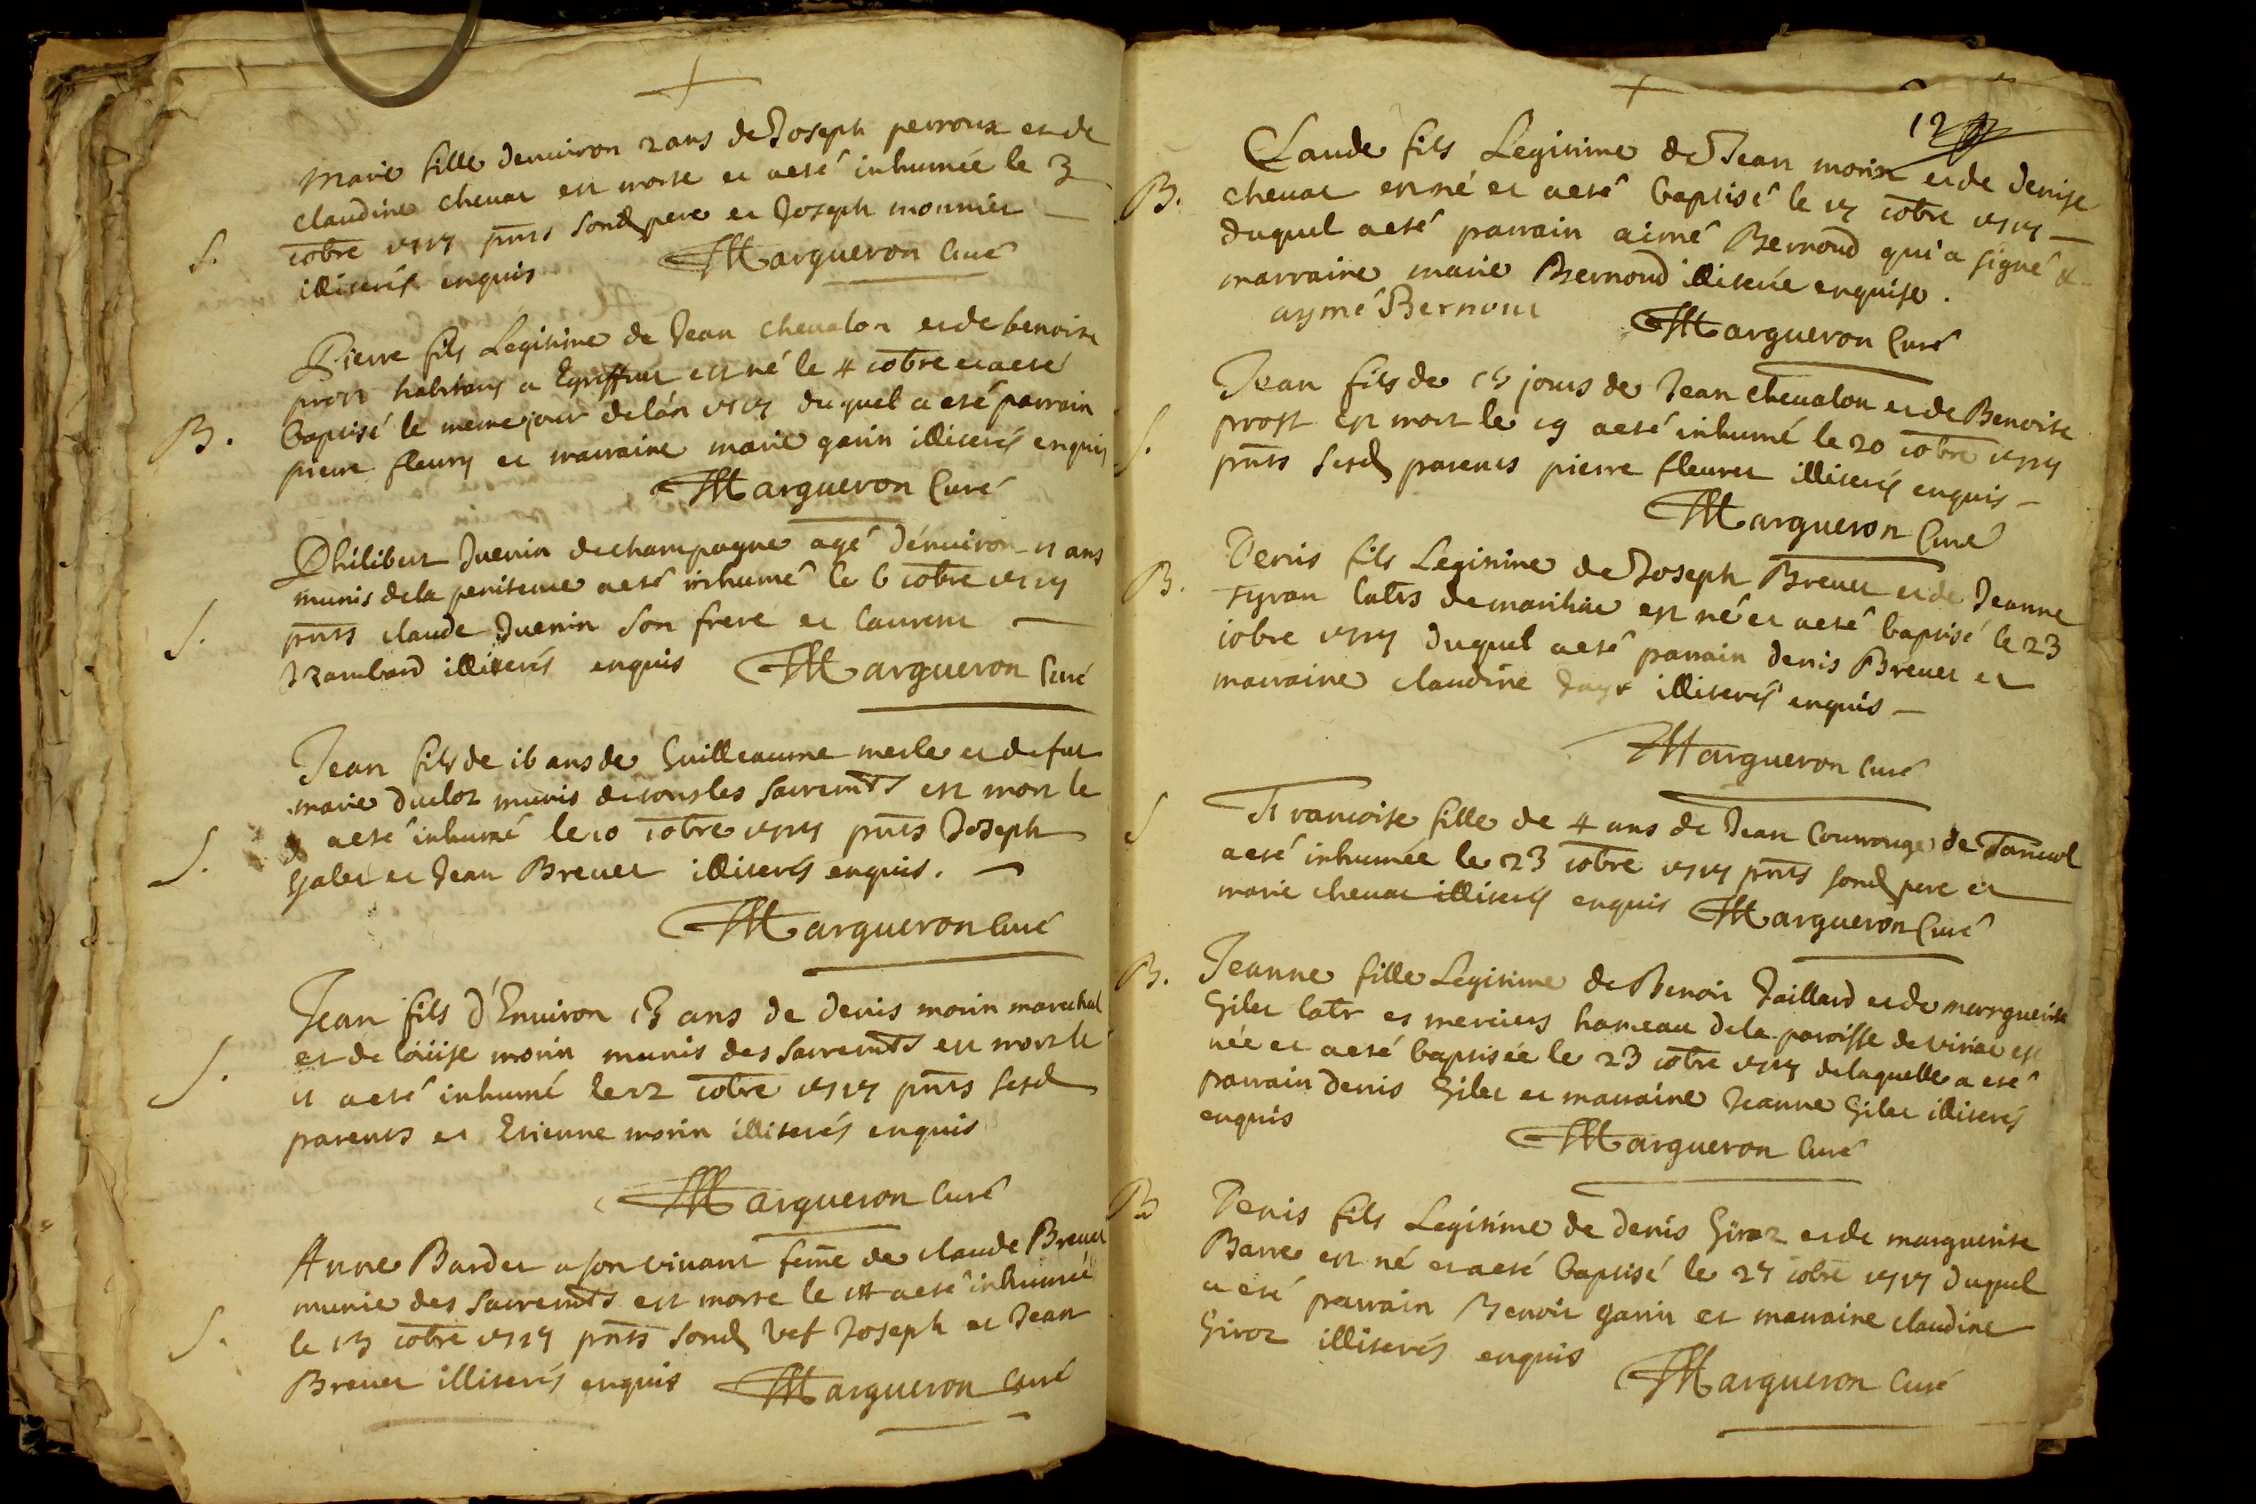 Marie fille denuiron 2 ans de Joseph perroux et de
claudine cheuat est morte et a eté inhumée le 3
S. iobre 1717 pnts sond pere et Joseph monnier
illiterés enquis Margueron Curé
Pierre fils Legitime de Jean cheualon et de benoite
prost habitans a est né le 4 iobre et a eté
B. baptisé le meme jour de lán 1717 du quel a eté parrain
pierre fleury et marraine marie garin illiterés enquis
Margueron Curé
Philibert Juenin de champagne agé dénuiron ans
munis de la penitence a eté inhumé le 6 iobre 1717
S. pnts claude Juenin son frere et laurent
Rambard illiterés enquis Margueron Curé
Jean fils de 16 ans de Guilleaume merle et de fut
marie duclot munis de tous les sacremts est mort le
S. 9 a eté inhumé le 10 iobre 1717 pnts Joseph
Galet et Jean Breuet illiterés enquis.
Margueron Curé
Jean fils d'Enuiron ans de denis morin marechal
et de loüise morin munis des sacremts est mort le
S. 11 a eté inhumé le 12 iobre 1717 pnts sesd
parents et Etienne morin illiterés enquis
Margueron Curé
Anne Bardet a son viuant feme de claude Breuet
munie des sacremts est morte le 14 a eté inhumée
S. le 15 iobre 1717 pnts sond vef Joseph et Jean
Breuet illiterés enquis Margueron Curé
12
Claude fils Legitime de Jean morin et de denise
B. cheuat est né et a eté baptisé le 17 iobre 1717
duquel a eté parrain aimé Bernoud qui a signé &
marraine marie Bernoud illiterée enquise.
aymé Bernout Margueron Curé
Jean fils de 15 jours de Jean cheualon et de Benoite
S. prost est mort le 19 a eté inhumé le 20 iobre 1717
pnts sesd parents pierre fleuret illiterés enquis
Margueron Curé
Denis fils Legitime de Joseph Breuet et de Jeanne
B. Tyran labrs de est né et a eté baptisé le 23
iobre 1717 duquel a eté parrain denis Breuet et
marraine claudine illiterés enquis
Margueron Curé
S Francoise fille de 4 ans de Jean Courrouge de
a eté inhumée le 23 iobre 1717 pnts sond pere et
marie cheuat illiterés enquis Margueron Curé
B. Jeanne fille Legitime de Benoit Jaillard et de marguerite
Gilet labr es merciers hameau de la paroisse de viriat est
née et a eté baptisée le 23 iobre 1717 de laquelle a eté
parrain denis Gilet et marraine Jeanne Gilet illiterés
enquis Margueron Curé
B Denis fils Legitime de denis Giroz et de marguerite
Barre est né et a eté baptisé le 27 iobre 1717 duquel
a eté parrain Benoit garin et marraine claudine
Giroz illiterés enquis Margueron Curé